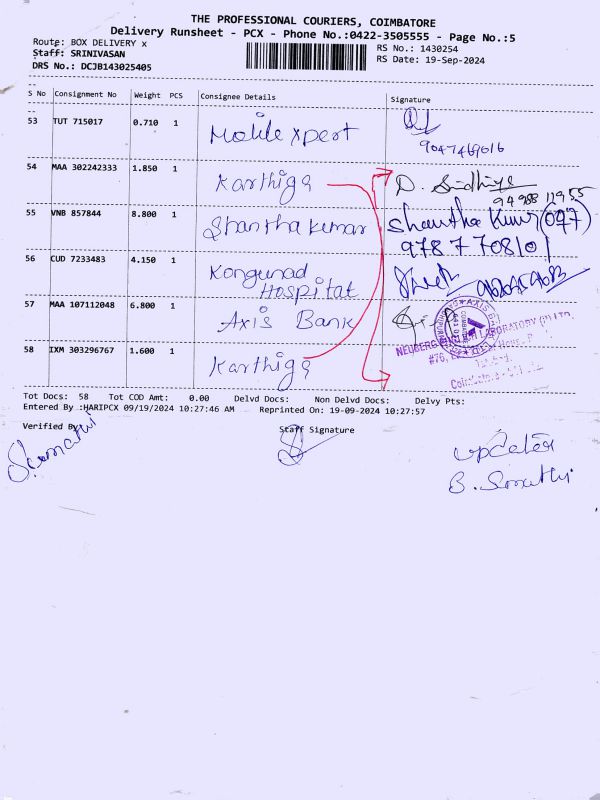 THE PROFESSIONAL COURIERS, COIMBATORE
Delivery Runsheet - PCX - Phone No.:0422-3505555 - Page No.:5
Route: BOX DELIVERY x
RS No.: 1430254
Staff: SRINIVASAN
RS Date: 19-Sep-2024
DRS No.: DCJB143025405
S No Consignment No Weight PCS Consignee Details Signature
53 TUT 715017 0.710 1 Mobile xpert
9047469016
54 MAA 302242333 1.850 1 Karthiga D. Sridhiya
94988 11955
55 VNB 857844 8.800 1 Shantha kumar Shantha Kumar (047)
9787708101
56 CUD 7233483 4.150 1 Kongunad
Hospital
57 MAA 107112048 6.800 1 Axis Bank
AXIS BANK
NEUBERG LABORATORY (P) LTD
#76,
58 IXM 303296767 1.600 1 Karthiga
Tot Docs: 58 Tot COD Amt: 0.00 Delvd Docs: Non Delvd Docs: Delvy Pts:
Entered By :HARIPCX 09/19/2024 10:27:46 AM Reprinted On: 19-09-2024 10:27:57
Verified By Staff Signature
B. Sumathi